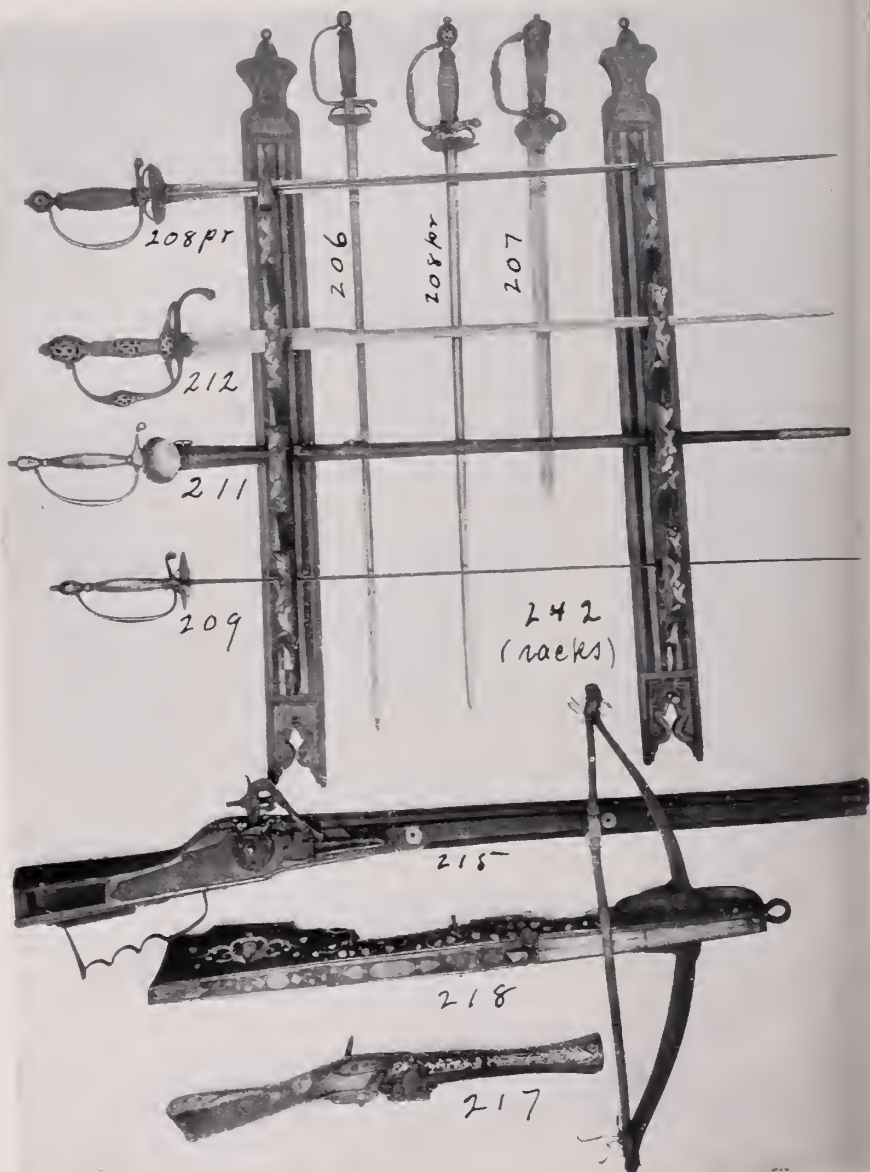 208pr
206
208pr
207
212
211
209
242
(racks)
215
218
217